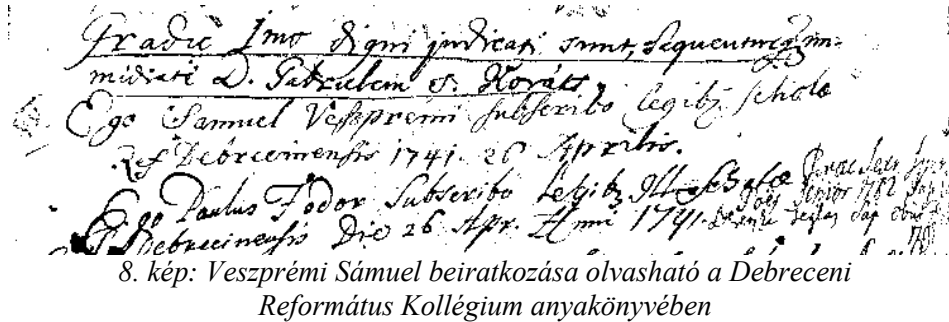 Gradu Imo digni judicati sunt, sequentur im-
midiati D. Gabrielem S. Kováts,
Ego Samuel Veszpremi subscribo legibq scholæ
Ref Debrecinensis 1741. 26 Aprilis.
Ego Paulus Fodor Subscribo Legibq Ill. Scholæ
Debrecinensis Die 26 Apr. Anni 1741.
8. kép: Veszprémi Sámuel beiratkozása olvasható a Debreceni
Református Kollégium anyakönyvében